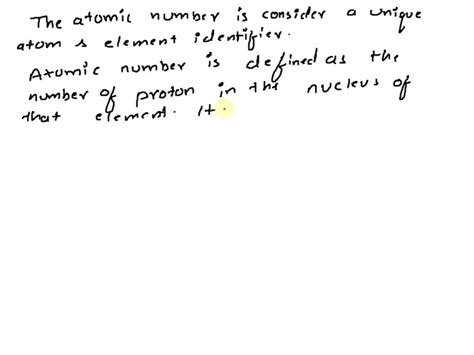 The atomic number is consider a unique
atom s element identifier.
Atomic number is defined as the
number of proton in the nucleus of
that element. It